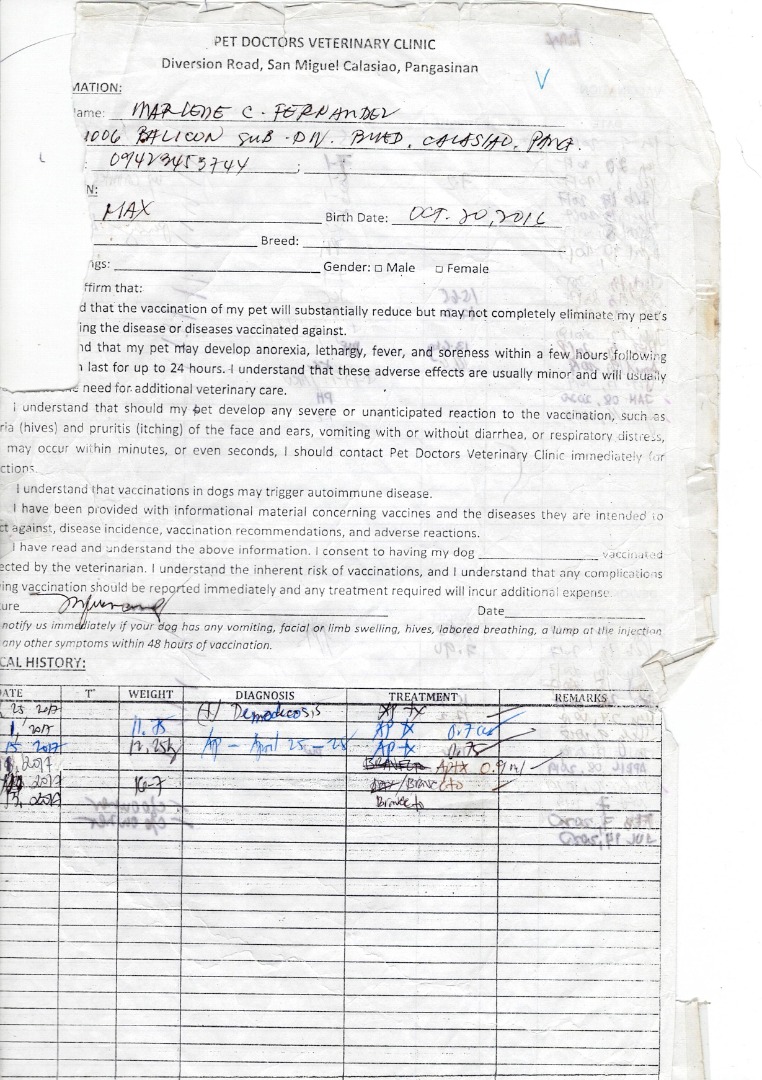 PET DOCTORS VETERINARY CLINIC
Diversion Road, San Miguel Calasiao, Pangasinan
V
MATION:
ame: MARLENE C. FERNANDEZ
1006 BALICON SUB-DIV. BUED, CALASIAO, PANG.
: 09423453744 ;
N:
MAX Birth Date: OCT. 20, 2016
Breed:
ngs: Gender: □ Male □ Female
ffirm that:
d that the vaccination of my pet will substantially reduce but may not completely eliminate my pet's
ing the disease or diseases vaccinated against.
nd that my pet may develop anorexia, lethargy, fever, and soreness within a few hours following
last for up to 24 hours. I understand that these adverse effects are usually minor and will usually
need for additional veterinary care.
I understand that should my pet develop any severe or unanticipated reaction to the vaccination, such as
ria (hives) and pruritis (itching) of the face and ears, vomiting with or without diarrhea, or respiratory distress,
may occur within minutes, or even seconds, I should contact Pet Doctors Veterinary Clinic immediately for
ctions.
I understand that vaccinations in dogs may trigger autoimmune disease.
I have been provided with informational material concerning vaccines and the diseases they are intended to
ct against, disease incidence, vaccination recommendations, and adverse reactions.
I have read and understand the above information. I consent to having my dog vaccinated
ected by the veterinarian. I understand the inherent risk of vaccinations, and I understand that any complications
ing vaccination should be reported immediately and any treatment required will incur additional expense.
ure Date
notify us immediately if your dog has any vomiting, facial or limb swelling, hives, labored breathing, a lump at the injection
any other symptoms within 48 hours of vaccination.
CAL HISTORY:
ATE T° WEIGHT DIAGNOSIS TREATMENT REMARKS
25 2017 (+) Demodecosis AP tx
1, 2017 11.75 AP tx 0.7
15 2017 12.25 AP - April 25 - 28 AP tx 0.75
2017 APtx 0.9 ml
2017 16-7 /Bravecto
2017 Bravecto